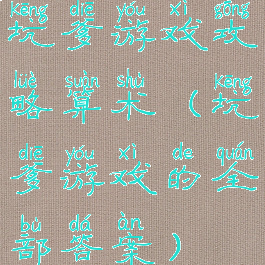 kēng diē yóu xì gōng
坑爹游戏攻
lüè suàn shù kēng
略算术（坑
diē yóu xì de quán
爹游戏的全
bù dá àn
部答案）